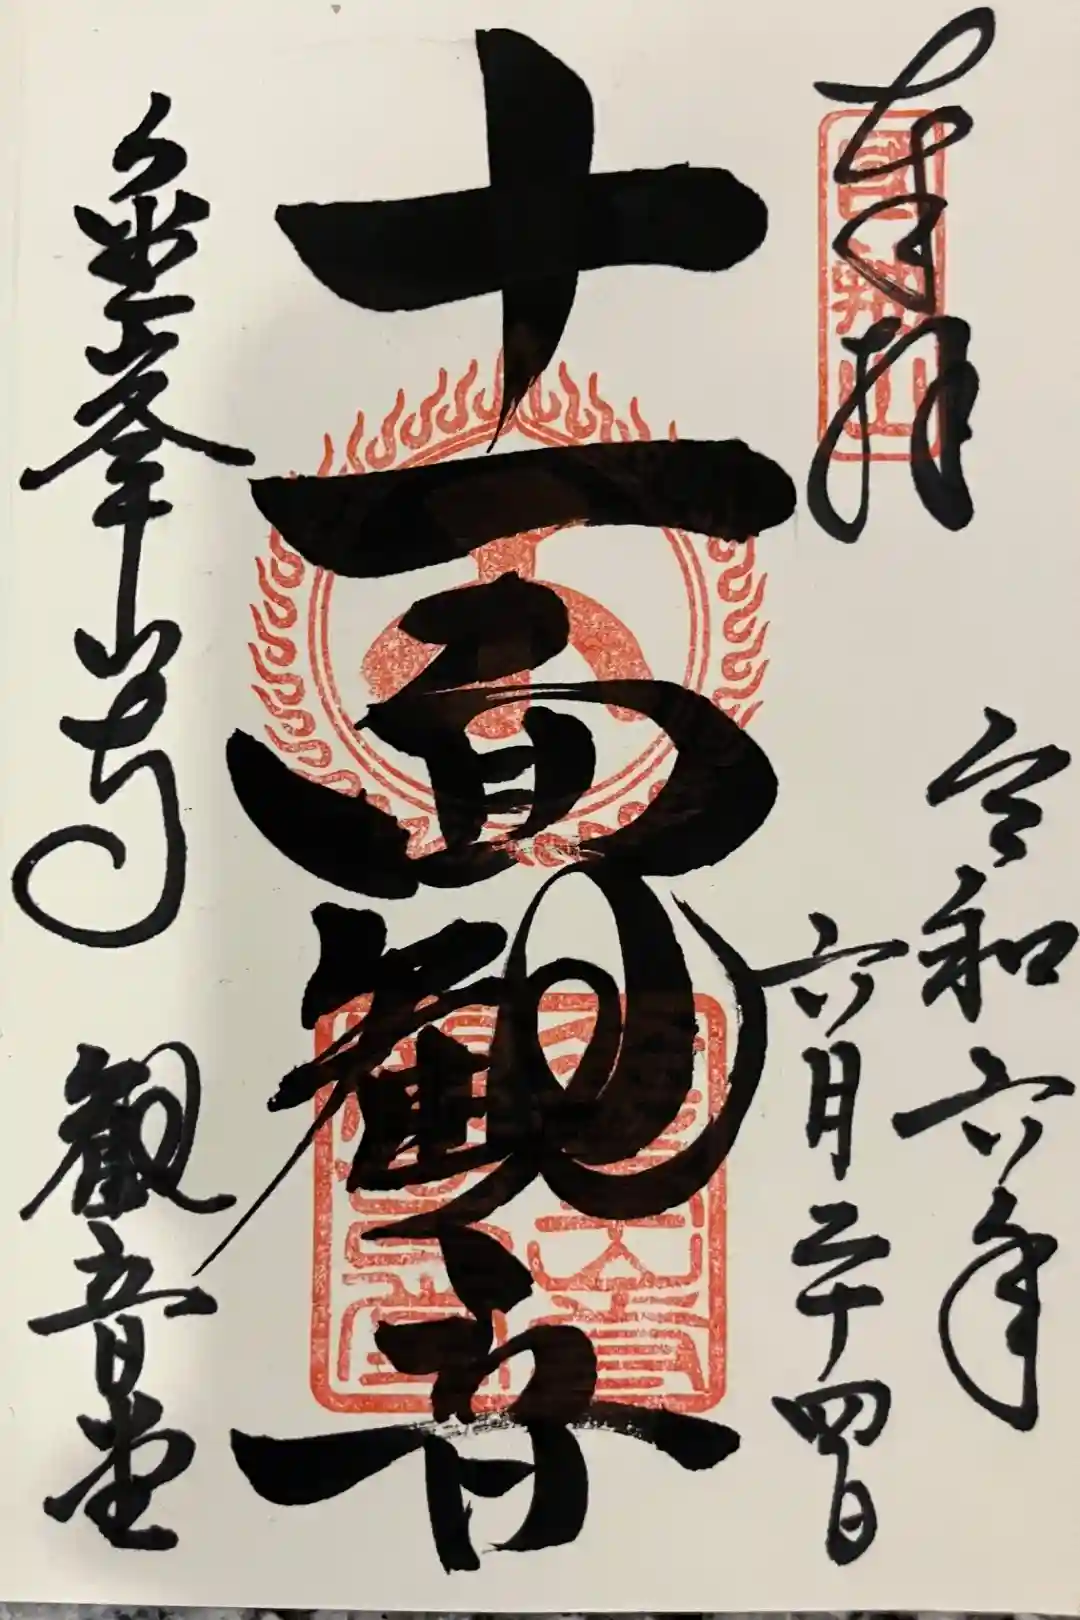 奉拝
国軸山
令和六年
六月二十四日
十一面観音
金峯山寺 観音堂